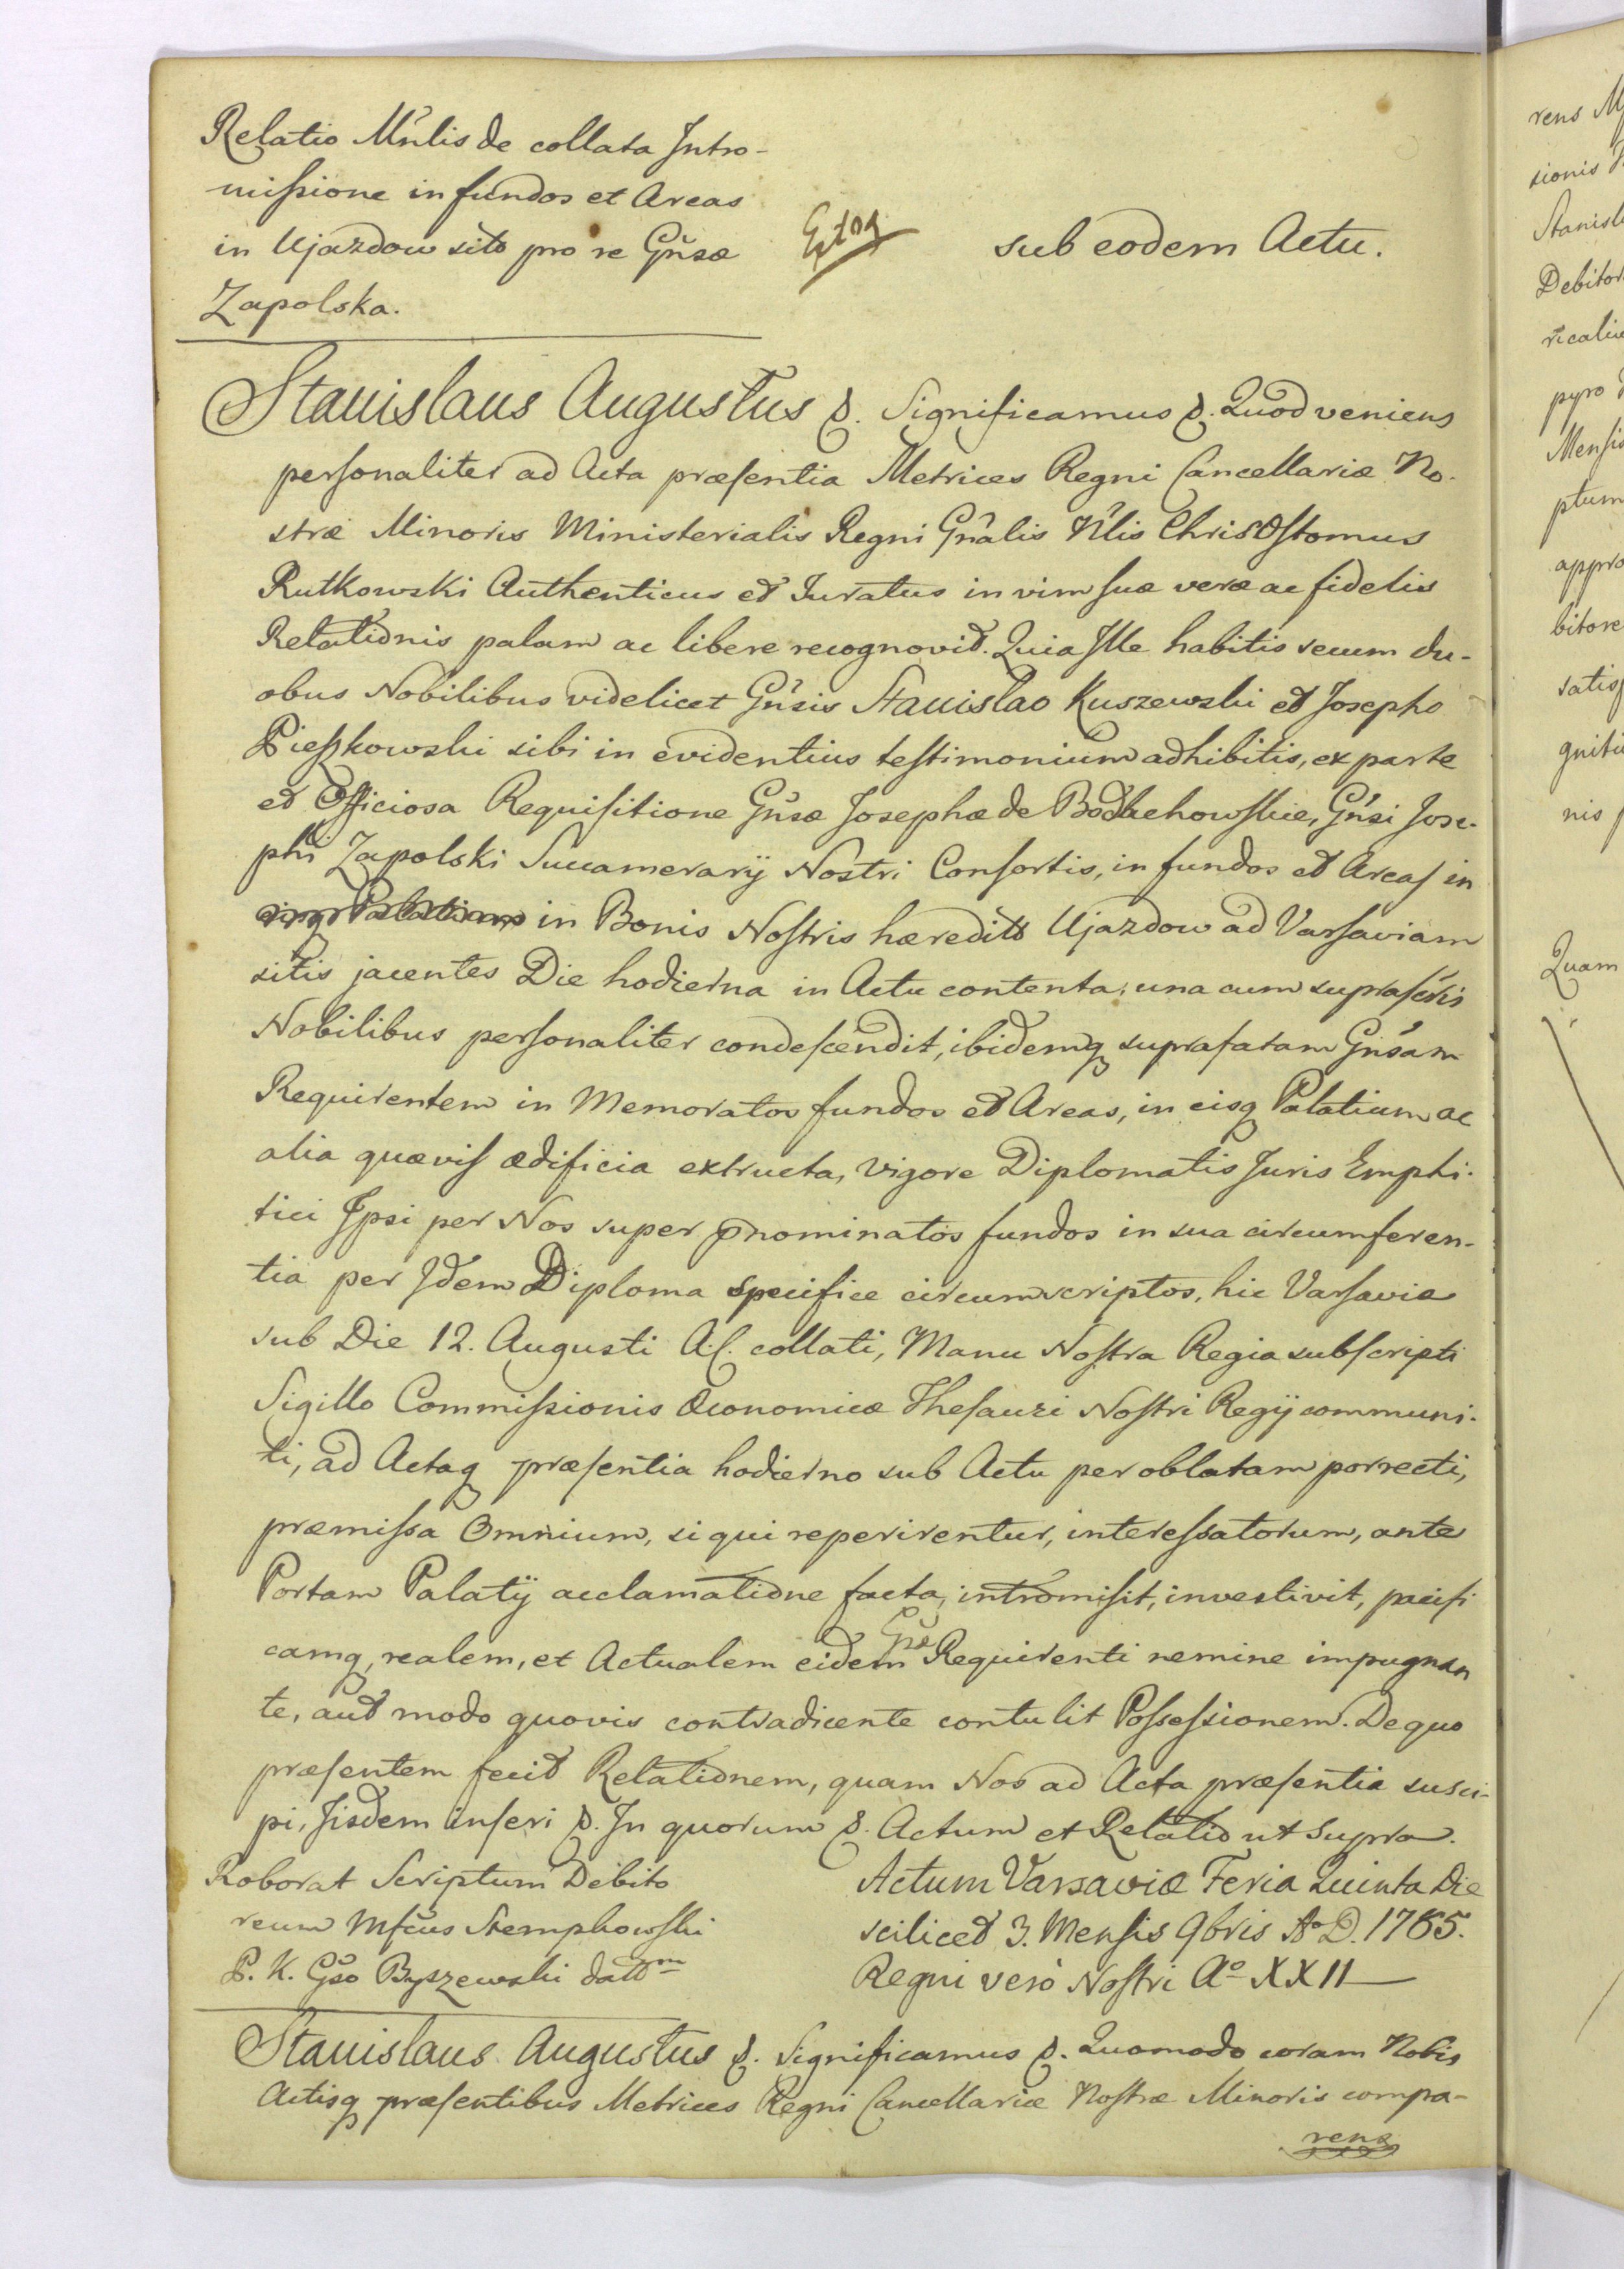 Relatio Mnlis de collata Intro-
missione in fundos et Areas
in Ujazdow sito pro re Gnsæ
Zapolska.
sub eodem Actu.
Stanislaus Augustus &. Significamus &. Quod veniens
personaliter ad Acta præsentia Metrices Regni Cancellariæ No-
stræ Minoris Ministerialis Regni Gnâlis Nlis Chrisostomus
Rutkowski Authenticus et Juratus in vim suæ veræ ac fidelis
Relationis palam ac libere recognovit. Quia Ille habitis secum du-
obus Nobilibus videlicet Gnsis Stanislao Kuszewski et Josepho
Pieszkowski sibi in evidentius testimonium adhibitis, ex parte
et Officiosa Requisitione Gnsæ Josephæ de Gnsi Jose-
phi Zapolski Succamerarÿ Nostri Consortis, in fundos et Areas in
in Bonis Nostris hæredits Ujazdow ad Varsaviam
sitis jacentes Die hodierna in Actu contenta, una cum suprascris
Nobilibus personaliter condescendit, ibidemq suprafatam Gnsam
Requirentem in Memoratos fundos et Areas, in eisq Palatium ac
alia quævis ædificia extructa, vigore Diplomatis Juris Emphi-
tici Ipsi per Nos super pnominatos fundos in sua circumferen-
tia per Idem Diploma specifice circumscriptos, hic Varsaviæ
sub Die 12. Augusti A.C. collati, Manu Nostra Regia subscripti
Sigillo Commissionis Œconomicæ Thesauri Nostri Regÿ communi-
ti, ad Actaq præsentia hodierno sub Actu per oblatam porrecti,
præmissa Omnium, si qui reperirentur, interessatorum, ante
Portam Palatÿ acclamatione facta, intromisit, investivit, pacifi
camq, realem, et Actualem eidem Gnsæ Requirenti nemine impugnan
te, aut modo quovis contradicente contulit Possessionem. De quo
præsentem fecit Relationem, quam Nos ad Acta præsentia susci-
pi, Iisdem inseri &. In quorum &. Actum et Relatio ut supra.
Roborat Scriptum Debito
reum Mfcus Stempkowski
P. K. Gso Byszewski dattm
Actum Varsaviæ Feria Quinta Die
scilicet 3. Mensis 9bris Ao D. 1785.
Regni vero Nostri Ao XXII
Stanislaus Augustus &. Significamus &. Quomodo coram Nobis
Actisq præsentibus Metrices Regni Cancellariæ Nostræ Minoris compa-
rens